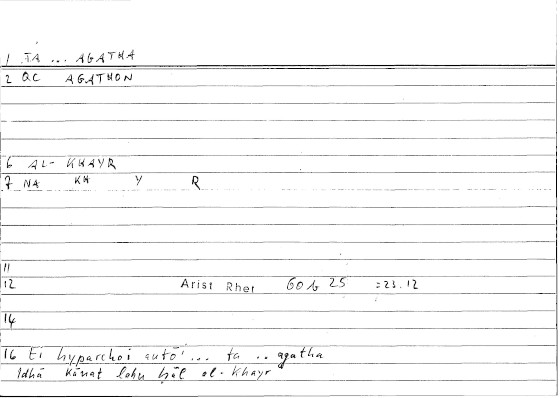 1 TA ... AGATHA
2 QC AGATHON
6 AL- KHAYR
7 NA KH Y R
11
12 Arist Rhet 60b 25 =23.12
14
16 Ei hyparchoi autōi ... ta .. agatha
Idhā kānat lahu ḥāl al-khayr